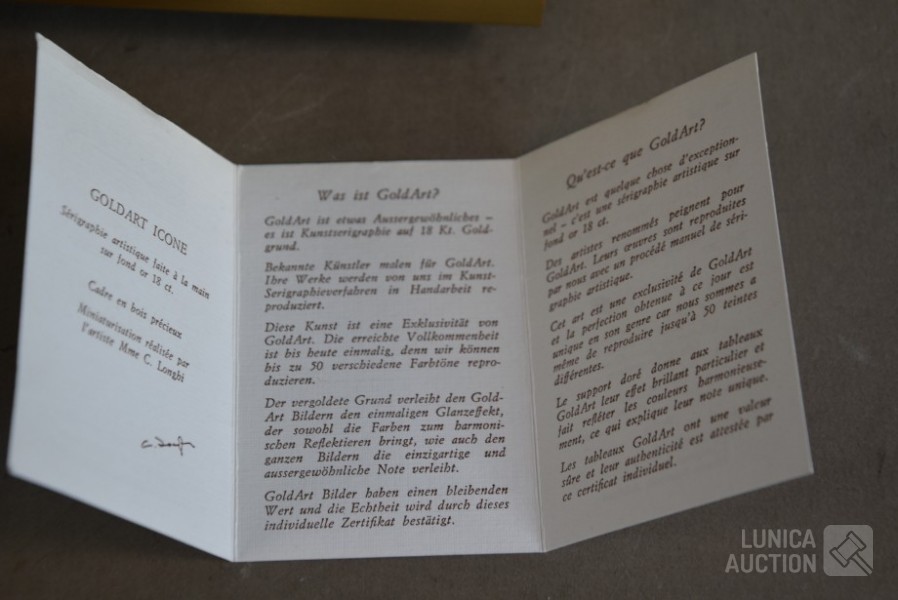 GOLDART ICONE
Sérigraphie artistique faite à la main
sur fond or 18 ct.
Cadre en bois précieux
Miniaturisation réalisée par
l'artiste Mme C. Longhi
Was ist GoldArt?
GoldArt ist etwas Aussergewöhnliches –
es ist Kunstserigraphie auf 18 Kt. Gold-
grund.
Bekannte Künstler malen für GoldArt.
Ihre Werke werden von uns im Kunst-
Serigraphieverfahren in Handarbeit re-
produziert.
Diese Kunst ist eine Exklusivität von
GoldArt. Die erreichte Vollkommenheit
ist bis heute einmalig, denn wir können
bis zu 50 verschiedene Farbtöne repro-
duzieren.
Der vergoldete Grund verleiht den Gold-
Art Bildern den einmaligen Glanzeffekt,
der sowohl die Farben zum harmoni-
schen Reflektieren bringt, wie auch den
ganzen Bildern die einzigartige und
aussergewöhnliche Note verleiht.
GoldArt Bilder haben einen bleibenden
Wert und die Echtheit wird durch dieses
individuelle Zertifikat bestätigt.
Qu'est-ce que GoldArt?
GoldArt est quelque chose d'exception-
nel – c'est une sérigraphie artistique sur
fond or 18 ct.
Des artistes renommés peignent pour
GoldArt. Leurs œuvres sont reproduites
par nous avec un procédé manuel de séri-
graphie artistique.
Cet art est une exclusivité de GoldArt
et la perfection obtenue à ce jour est
unique en son genre car nous sommes a
même de reproduire jusqu'à 50 teintes
différentes.
Le support doré donne aux tableaux
GoldArt leur effet brillant particulier et
fait refléter les couleurs harmonieuse-
ment, ce qui explique leur note unique.
Les tableaux GoldArt ont une valeur
sûre et leur authenticité est attestée par
ce certificat individuel.
LUNICA
AUCTION